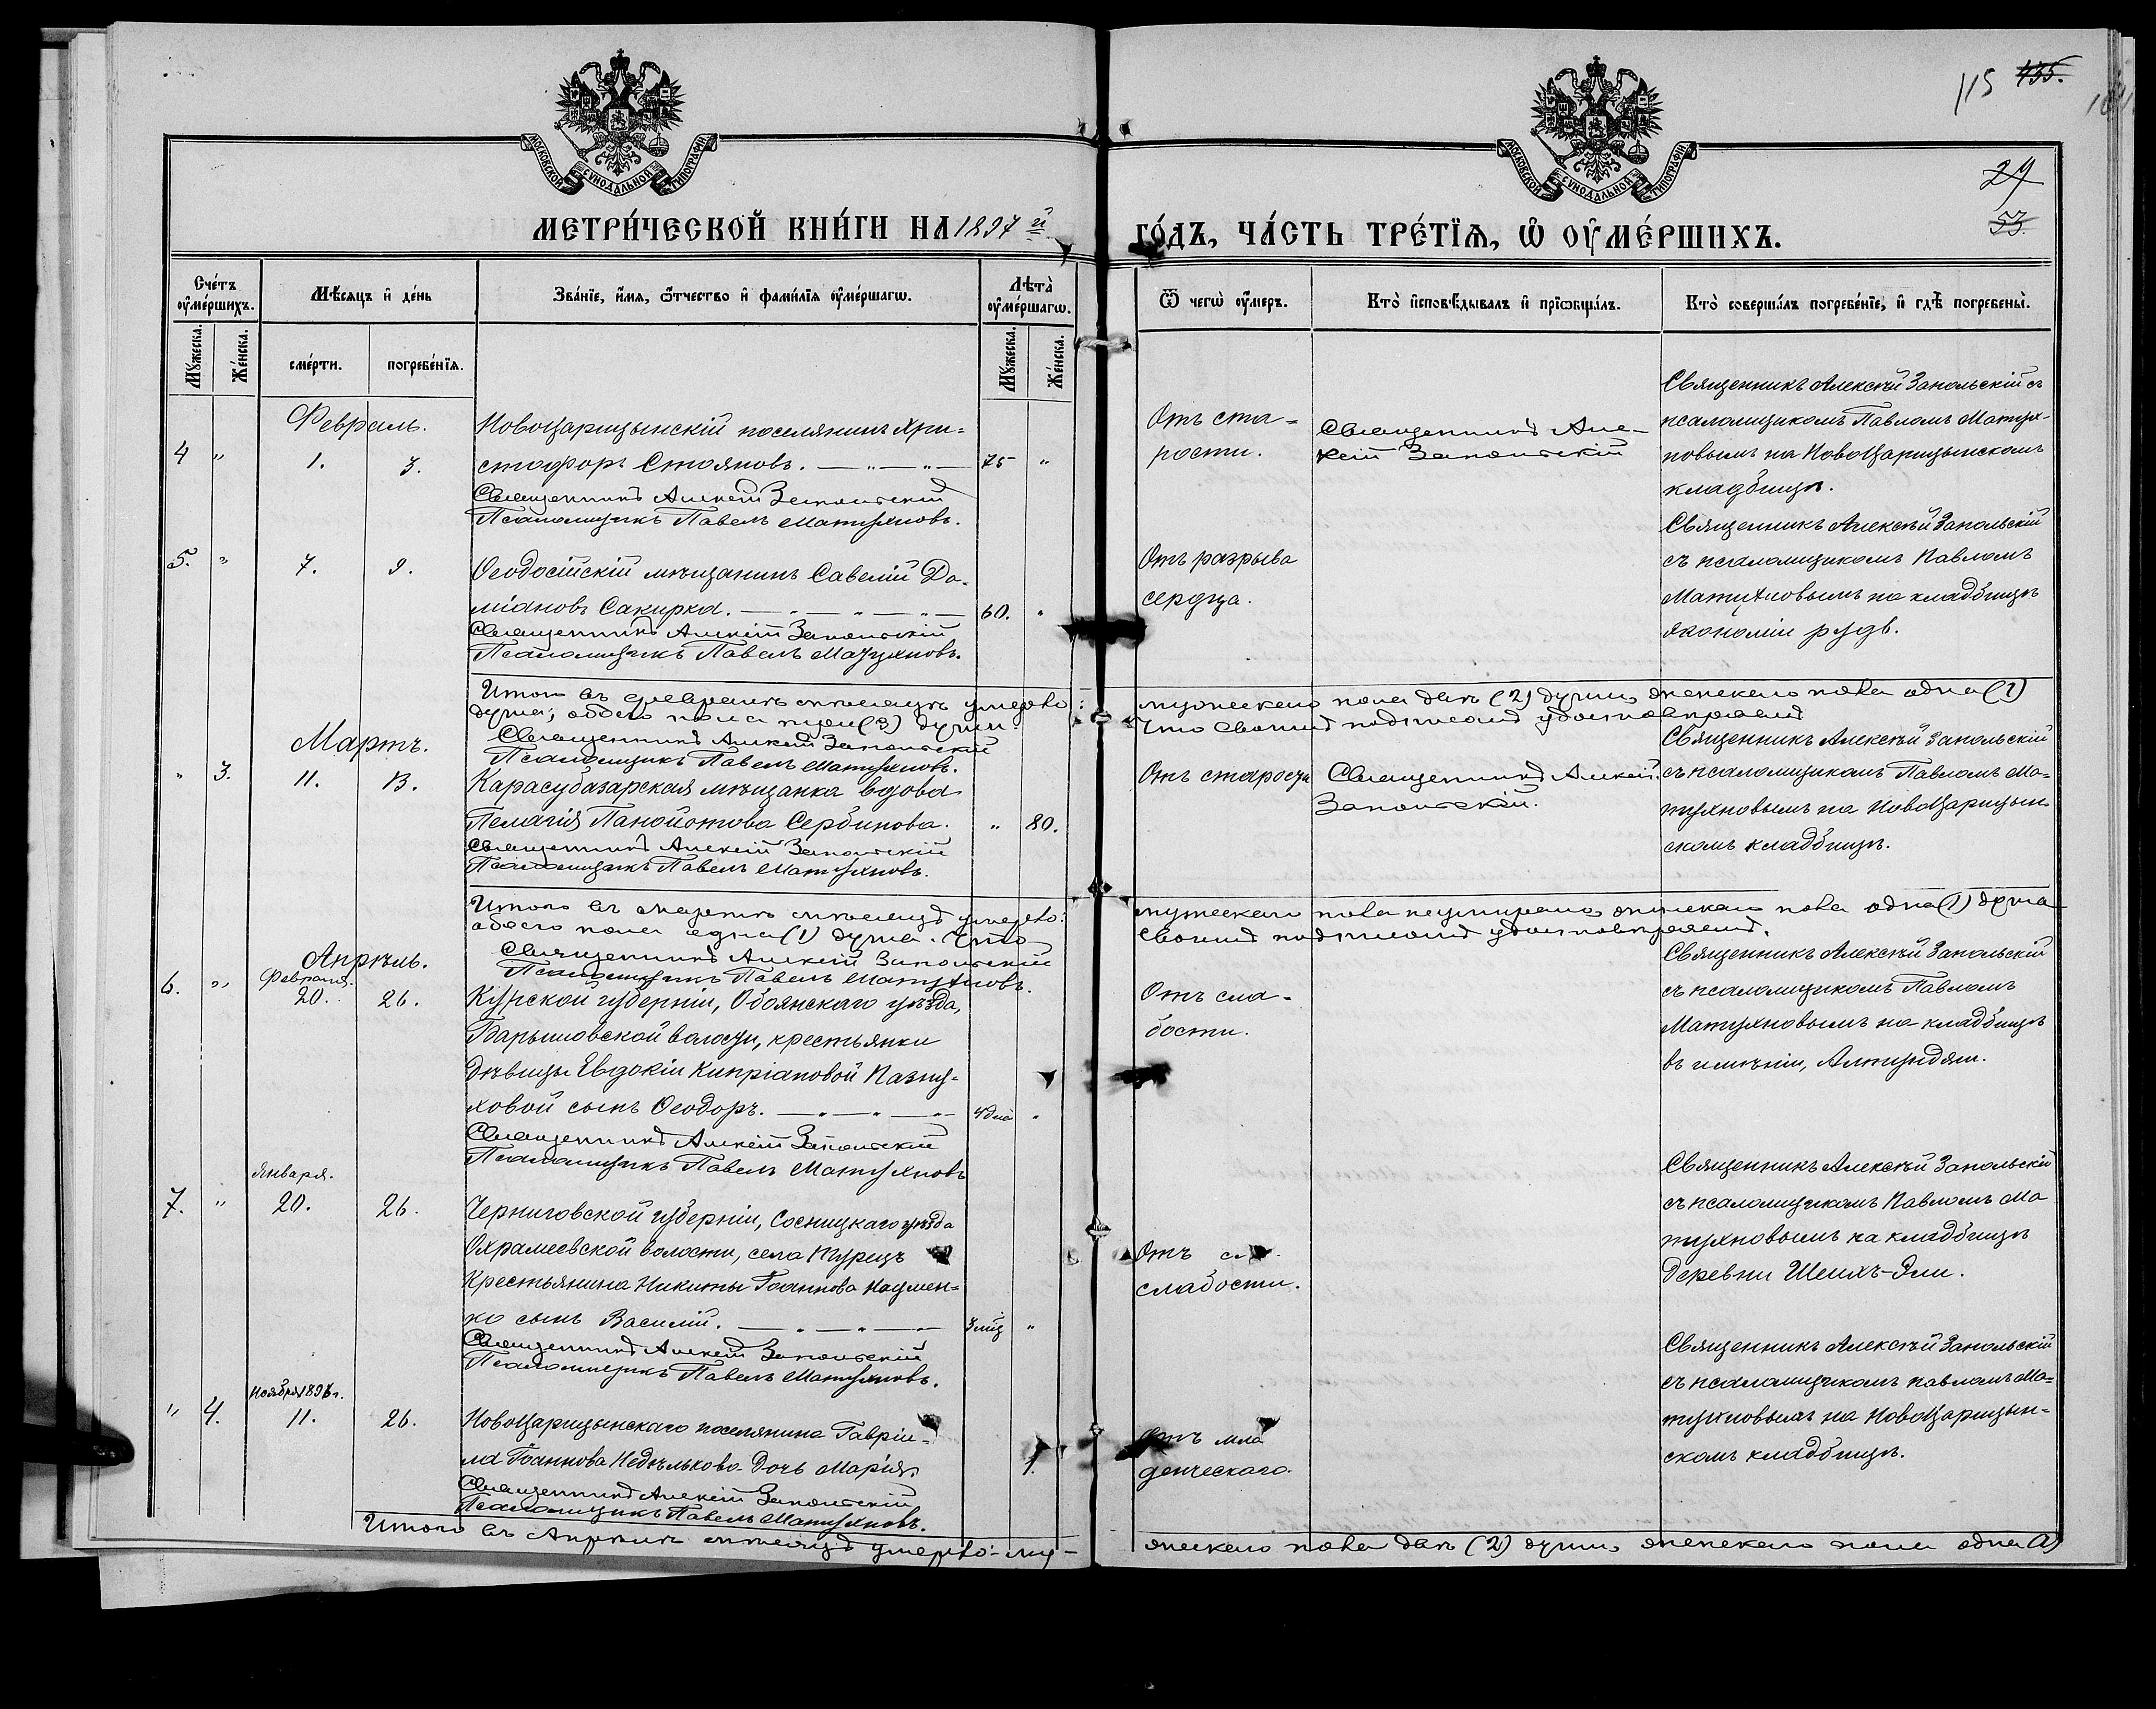 115 135.
29
53.
МОСКОВСКОЙ СѴНОДАЛЬНОЙ ТИПОГРАФІИ
МОСКОВСКОЙ СѴНОДАЛЬНОЙ ТИПОГРАФІИ
МЕТРИ́ЧЕСКОЙ КНИ́ГИ НА 1897й
ГО́ДЪ, ЧА́СТЬ ТРЕ́ТЇѦ, Ѡ҆ ОУ҆МЕ́РШИХЪ.
Сче́тъ оу҆ме́ршихъ.
Мѣ́сѧцъ и҆ де́нь
Зва́нїе, и҆́мѧ, ѻ҆́тчество и҆ фами́лїѧ оу҆ме́ршагѡ.
Лѣта̀ оу҆ме́ршагѡ.
Ѿ чегѡ̀ оу҆́меръ.
Кто̀ и҆сповѣ́дывалъ и҆ прїѡбща́лъ.
Кто̀ соверша́лъ погребе́нїе, и҆ гдѣ̀ погребены̀.
Мꙋ́жеска.
Же́нска.
сме́рти.
погребе́нїѧ.
Мꙋ́жеска.
Же́нска.
Февраль.
4 " 1. 3.
НовоЦарицынскій поселянинъ Хри=
стофоръ Стояновъ. — " — " — 75 "
Священникъ Алексій Запольскій
Псаломщикъ Павелъ Матухновъ.
Отъ ста=
рости.
Священникъ Але-
ксій Запольскій
Священникъ Алексѣй Запольскій съ
псаломщикомъ Павломъ Матух-
новымъ на НовоЦарицынскомъ
кладбищѣ.
5. " 7. 9.
Ѳеодосійскій мѣщанинъ Савелій Да-
міановъ Сакирка. — " — " — " — 60. "
Священникъ Алексій Запольскій
Псаломщикъ Павелъ Матухновъ.
Отъ разрыва
сердца.
Священникъ Алексѣй Запольскій
съ псаломщикомъ Павломъ
Матухновымъ на кладбищѣ
экономіи
Итого въ февралѣ мѣсяцѣ умерло:
мужескаго пола двѣ (2) души, женскаго пола одна (1)
душа; обоего пола три (3) души.
Что своимъ подписомъ удостовѣряемъ
Священникъ Алексій Запольскій
Псаломщикъ Павелъ Матухновъ.
Мартъ.
" 3. 11. 13.
Карасубазарская мѣщанка вдова
Пелагія Панойотова Сербинова. " 80.
Священникъ Алексій Запольскій
Псаломщикъ Павелъ Матухновъ.
Отъ старости
Священникъ Алексій
Запольскій.
Священникъ Алексѣй Запольскій
съ псаломщикомъ Павломъ Ма=
тухновымъ на НовоЦарицын-
скомъ кладбищѣ.
Итого въ мартѣ мѣсяцѣ умерло:
мужескаго пола неумирало, женскаго пола одна (1) душа
обоего пола одна (1) душа. Что
своимъ подписомъ удостовѣряемъ.
Священникъ Алексій Запольскій
Псаломщикъ Павелъ Матухновъ.
Апрѣль.
Февраля.
6. " 20. 26.
Курской губерніи, Обоянскаго уѣзда,
Барышовской волости, крестьянки
Дѣвицы Евдокіи Кипріановой Пазну-
ховой сынъ Ѳеодоръ. — " — " — " 4 дня "
Священникъ Алексій Запольскій
Псаломщикъ Павелъ Матухновъ
Отъ сла-
бости.
Священникъ Алексѣй Запольскій
съ псаломщикомъ Павломъ
Матухновымъ на кладбищѣ
въ имѣніи,
Января.
7. " 20. 26.
Черниговской губерніи, Сосницкаго уѣзда
Охрамеевской волости, села
Крестьянина Никиты Іоаннова Наумен=
ко сынъ Василій. — " — " — 3 мѣс "
Священникъ Алексій Запольскій
Псаломщикъ Павелъ Матухновъ.
Отъ
слабости.
Священникъ Алексѣй Запольскій
съ псаломщикомъ Павломъ Ма
тухновымъ на кладбищѣ
Деревни Шеихъ-Эли.
Ноября 1896 г.
" 4. 11. 26.
НовоЦарицынскаго поселянина Гаврiи-
ла Іоаннова Недѣлькова дочь Марія. 1.
Священникъ Алексій Запольскій
Псаломщикъ Павелъ Матухновъ.
Отъ мла
денческаго.
Священникъ Алексѣй Запольскій
съ псаломщикомъ Павломъ Ма=
тухновымъ на НовоЦарицын=
скомъ кладбищѣ.
Итого въ Апрѣлѣ мѣсяцѣ умерло: му-
жескаго пола двѣ (2) души, женскаго пола одна (1)